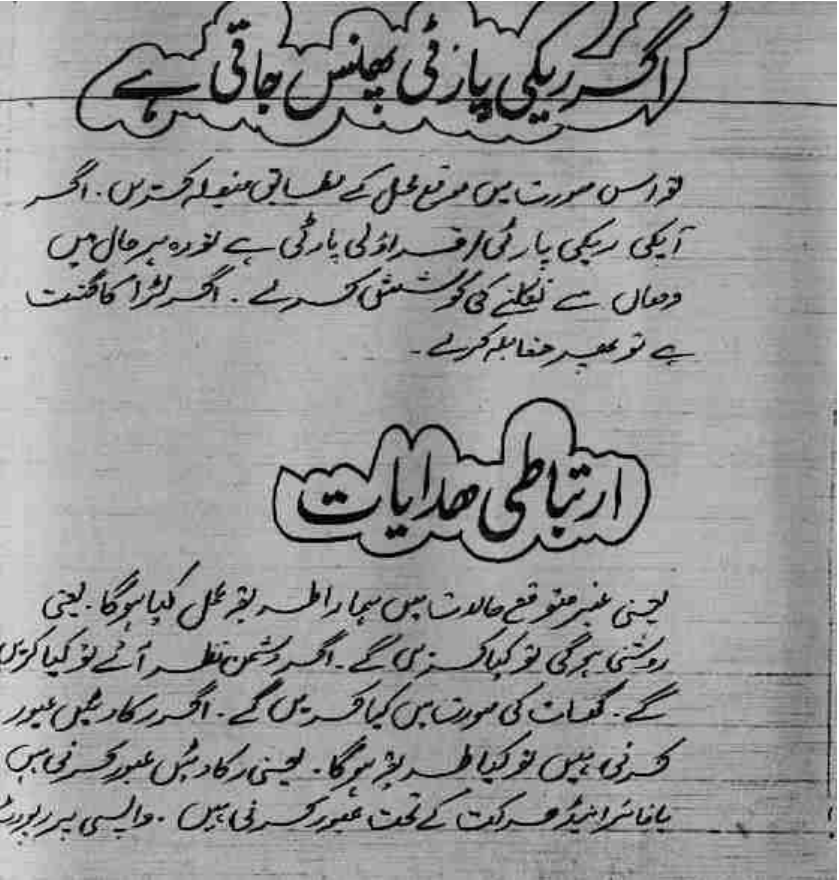 اگر ریکی پارٹی پھنس جاتی ہے
تو اس صورت میں موقع محل کے مطابق فیصلہ کریں۔ اگر
آپکی ریکی پارٹی / قراولی پارٹی ہے تو وہ ہر حال میں
وھاں سے نکلنے کی کوشش کرے۔ اگر لڑاکا گشت
ہے تو پھر مقابلہ کرے۔
ارتباطی ھدایات
یعنی غیر متوقع حالات میں ہمارا طریقہ عمل کیا ہوگا۔ یعنی
روشنی ہوگی تو کیا کریں گے۔ اگر دشمن نظر آئے تو کیا کریں
گے۔ گھات کی صورت میں کیا کریں گے۔ اگر رکاوٹیں عبور
کرنی ہیں تو کیا طریقہ ہوگا۔ یعنی رکاوٹیں عبور کرنی ہیں
یا فائر اینڈ حرکت کے تحت عبور کرنی ہیں۔ واپسی پر رپورٹ